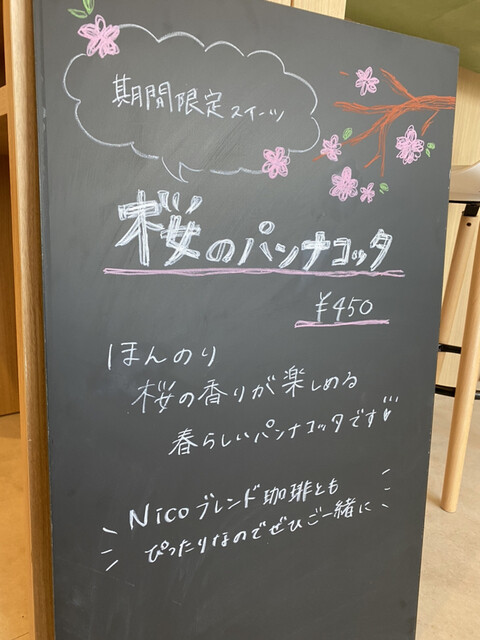 期間限定スイーツ
桜のパンナコッタ
¥450
ほんのり
桜の香りが楽しめる
春らしいパンナコッタです
Nicoブレンド珈琲とも
ぴったりなのでぜひご一緒に